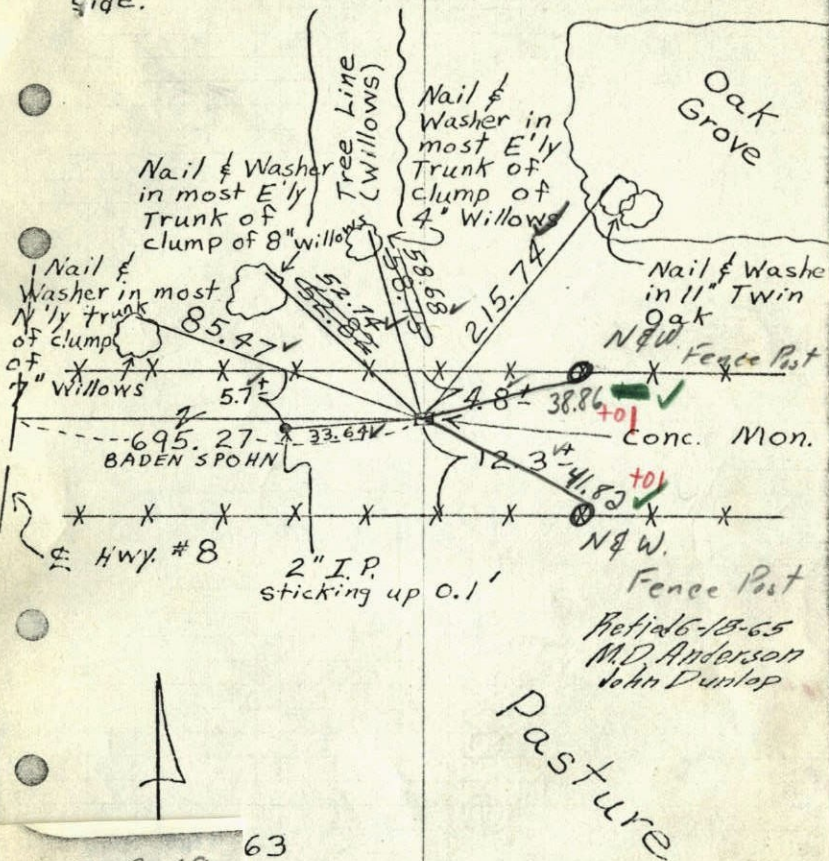 side.
Tree Line
(Willows)
Nail &
Washer in
most E'ly
Trunk of
clump of
4" Willows
Oak
Grove
Nail & Washer
in most E'ly
Trunk of
clump of 8" willows
Nail &
Washer in most
N'ly trunk
of clump
of
7" Willows
Nail & Washe
in 11" Twin
Oak
85.47
52.14
52.82
58.15
58.69
215.74
N&W.
Fence Post
5.7±
4.8±
38.86
+01
695.27
33.64
BADEN SPOHN
Conc. Mon.
12.3±
41.82
+01
N&W.
Fence Post
℄ Hwy. #8
2" I.P.
sticking up 0.1'
Retied 6-18-65
M.D. Anderson
John Dunlop
Pasture
63